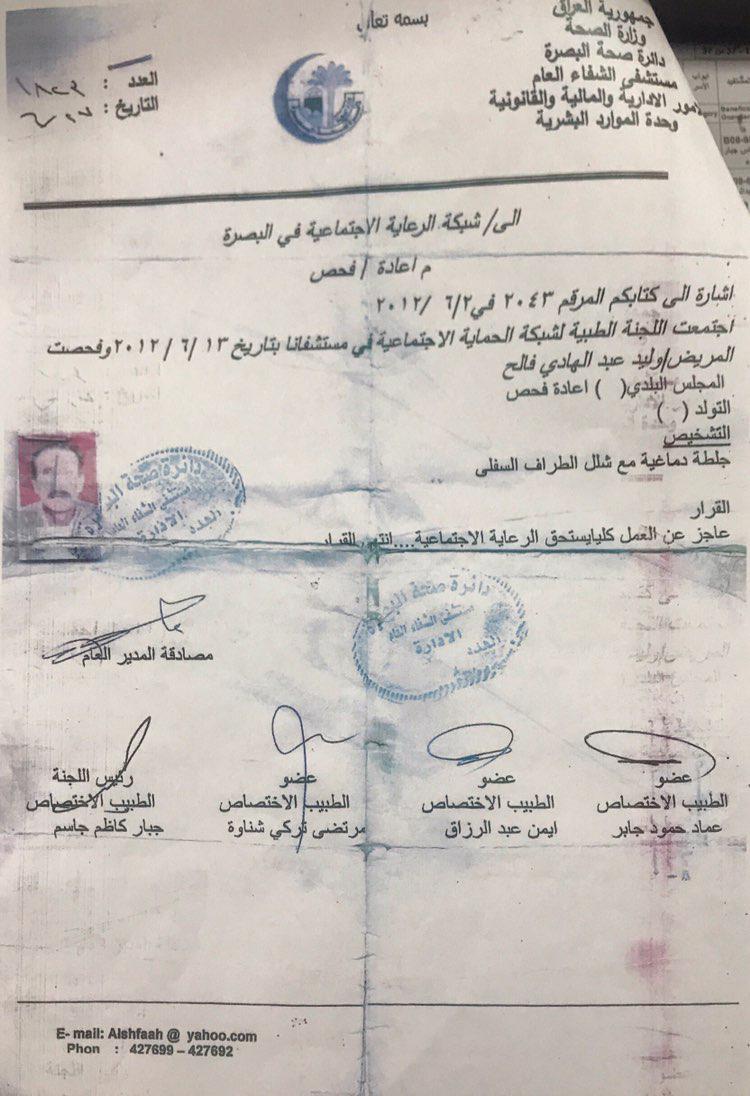 بسمه تعالى
جمهورية العراق
وزارة الصحة
دائرة صحة البصرة
مستشفى الشفاء العام
امور الادارية والمالية والقانونية
وحدة الموارد البشرية
العدد :
التاريخ :
الى/ شبكة الرعاية الاجتماعية في البصرة
م اعادة / فحص
اشارة الى كتابكم المرقم ٢٠٤٣ في ٦/٢/ ٢٠١٢
اجتمعت اللجنة الطبية لشبكة الحماية الاجتماعية في مستشفانا بتاريخ ١٣ /٦ / ٢٠١٢ وفحصت
المريض/وليد عبد الهادي فالح
المجلس البلدي( ) اعادة فحص
التولد ( )
التشخيص
جلطة دماغية مع شلل الطراف السفلى
القرار
عاجز عن العمل كليايستحق الرعاية الاجتماعية....انتهى القرار
دائرة صحة البصرة
مستشفى الشفاء العام
العدد
الادارة
دائرة صحة البصرة
مستشفى الشفاء العام
العدد
الادارة
مصادقة المدير العام
عضو
الطبيب الاختصاص
عماد حمود جابر
عضو
الطبيب الاختصاص
ايمن عبد الرزاق
عضو
الطبيب الاختصاص
مرتضى تركي شناوة
رئيس اللجنة
الطبيب الاختصاص
جبار كاظم جاسم
E- mail: Alshfaah @ yahoo.com
Phon : 427699 – 427692